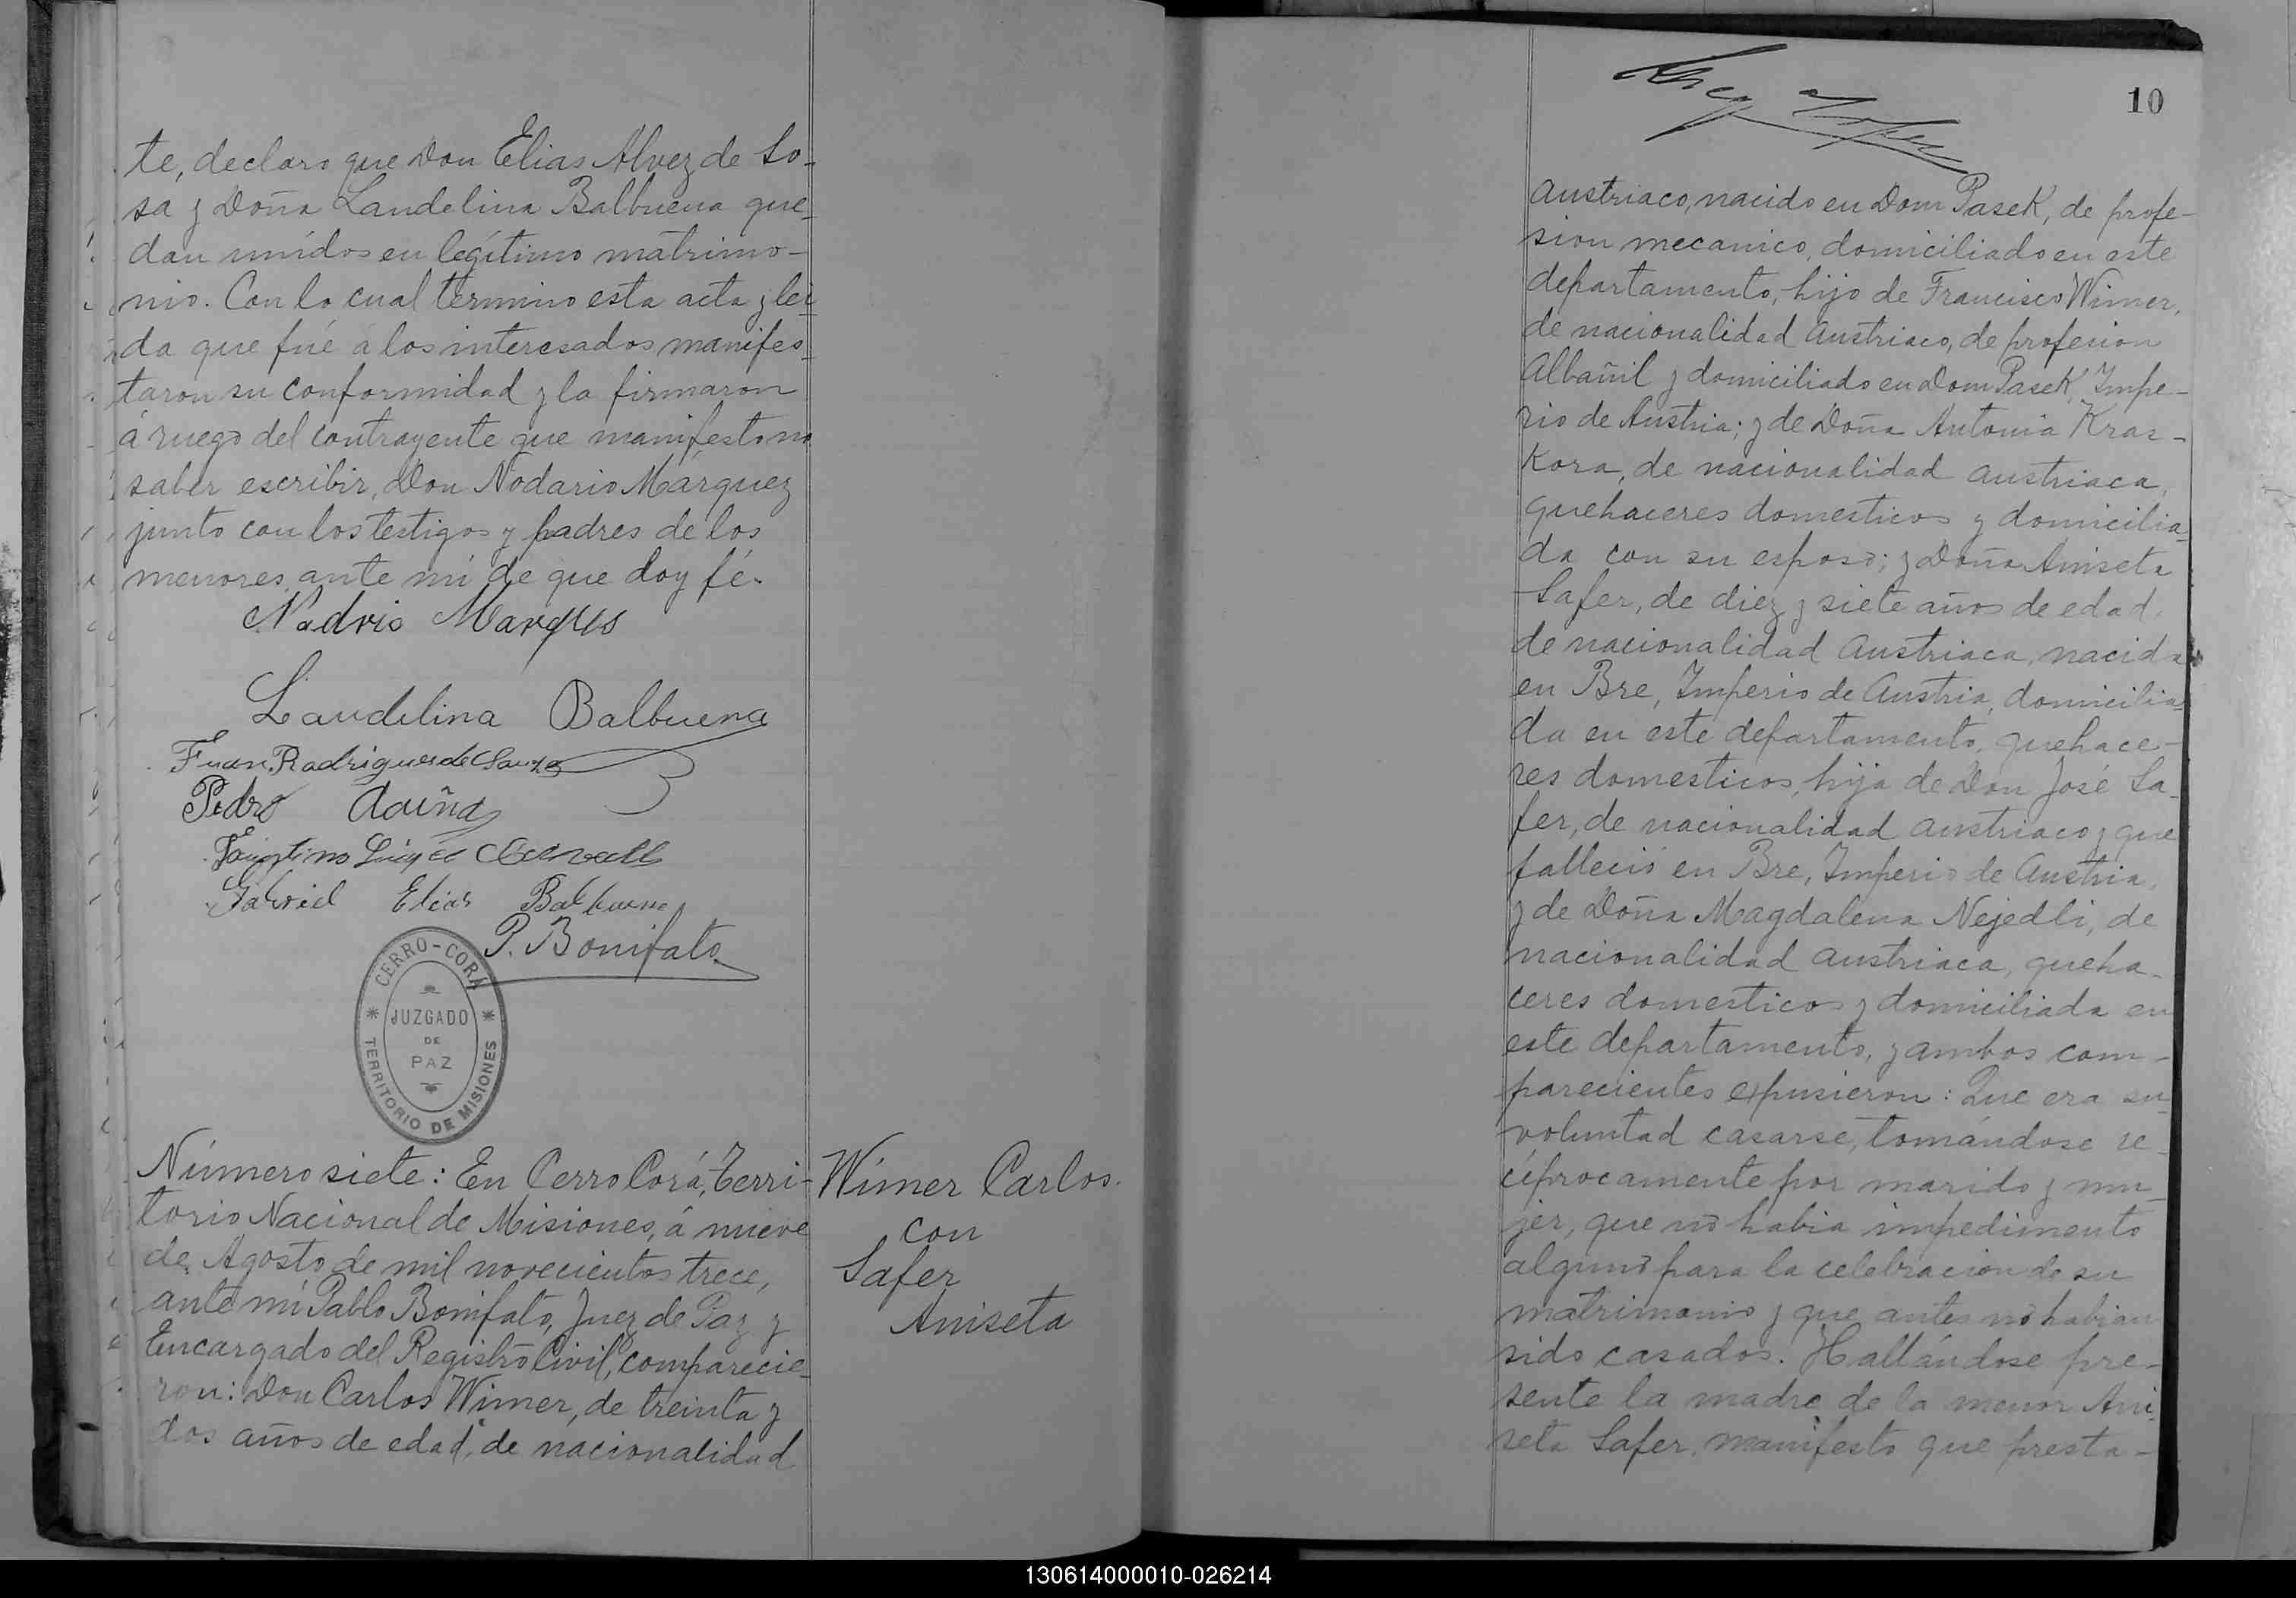 te, declaro que Don Elias Alvez de So-
sa y Doña Landelina Balbuena que-
dan unidos en legítimo matrimo-
nio. Con lo cual termino esta acta y lei-
da que fué á los interesados manifes-
taron su conformidad y la firmaron
á ruego del contrayente que manifesto no
saber escribir, Don Nodario Márquez
junto con los testigos y padres de los
menores, ante mi de que doy fé.
Nadrio Marques
Landelina Balbuena
Juan Rodrigues de
Pedro
Gabriel Elias Balbuena
P. Bonifato
CERRO-CORA
JUZGADO
DE
PAZ
TERRITORIO DE MISIONES
Número siete: En Cerro Corá, Terri-
torio Nacional de Misiones, á nueve
de Agosto de mil novecientos trece,
ante mi Pablo Bonifato, Juez de Paz y
Encargado del Registro Civil, comparecie-
ron: Don Carlos Wimer, de treinta y
dos años de edad, de nacionalidad
Wimer Carlos.
con
Safer
Aniseta
10
austriaco, nacido en Dom Pasek, de profe-
sion mecanico, domiciliado en este
departamento, hijo de Francisco Wimer,
de nacionalidad austriaco, de profesion
Albañil y domiciliado en Dom Pasek, Impe-
rio de Austria; y de Doña Antonia Kras-
kora, de nacionalidad austriaca,
quehaceres domesticos y domicilia-
da con su esposo; y Doña Aniseta
Safer, de diez y siete años de edad,
de nacionalidad austriaca, nacida
en Bre, Imperio de Austria, domicilia-
da en este departamento, quehace-
res domesticos, hija de Don José Sa-
fer, de nacionalidad austriaco y que
falleció en Bre, Imperio de Austria,
y de Doña Magdalena Nejedli, de
nacionalidad austriaca, queha-
ceres domesticos y domiciliada en
este departamento, y ambos com-
parecientes expusieron: Que era su
voluntad casarse, tomándose re-
cíprocamente por marido y mu-
jer, que no habia impedimento
alguno para la celebracion de su
matrimonio y que antes no habian
sido casados. Hallándose pre-
sente la madre de la menor Ani-
seta Safer, manifesto que presta-
130614000010-026214